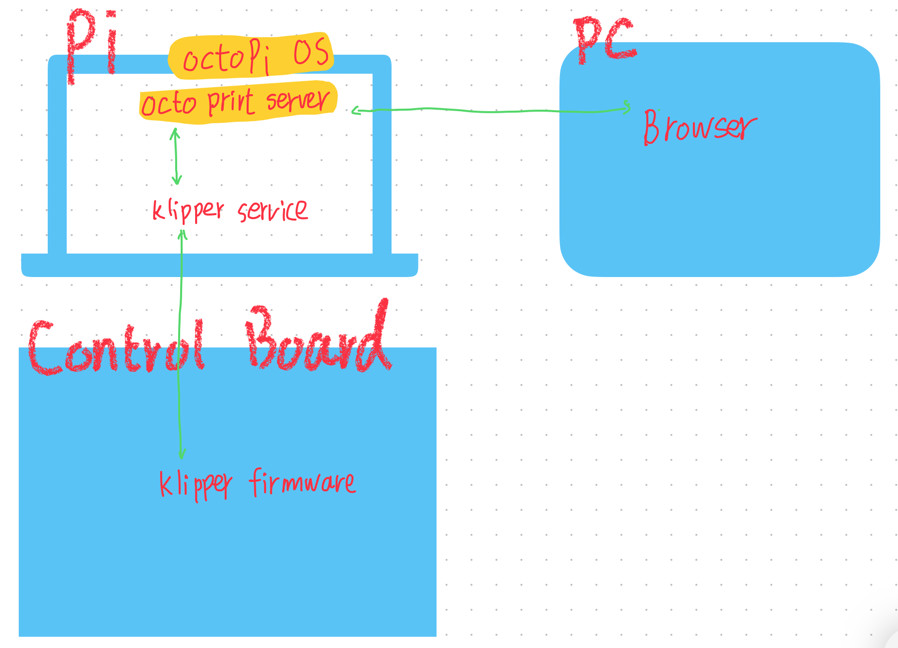 Pi
octoPi OS
octo print server
klipper service
PC
Browser
Control Board
klipper firmware